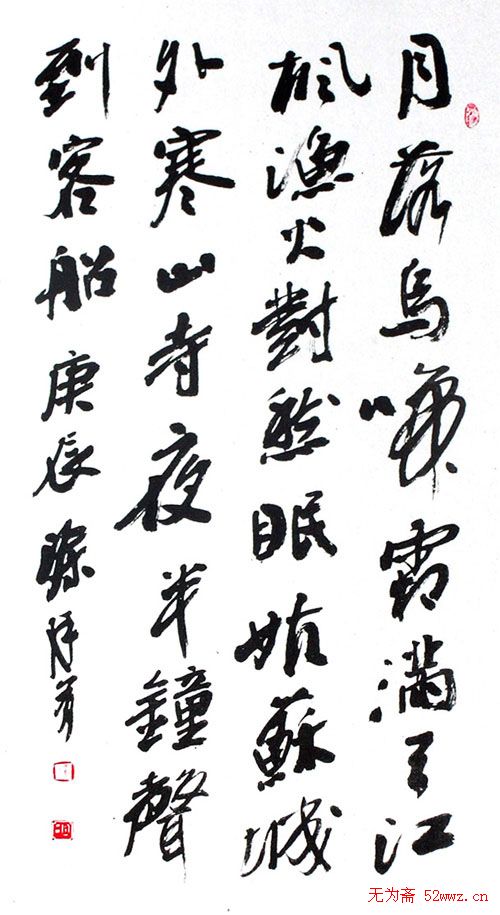 月落烏啼霜滿天江
楓漁火對愁眠姑蘇城
外寒山寺夜半鐘聲
到客船庚辰
无为斋 52wwz.cn